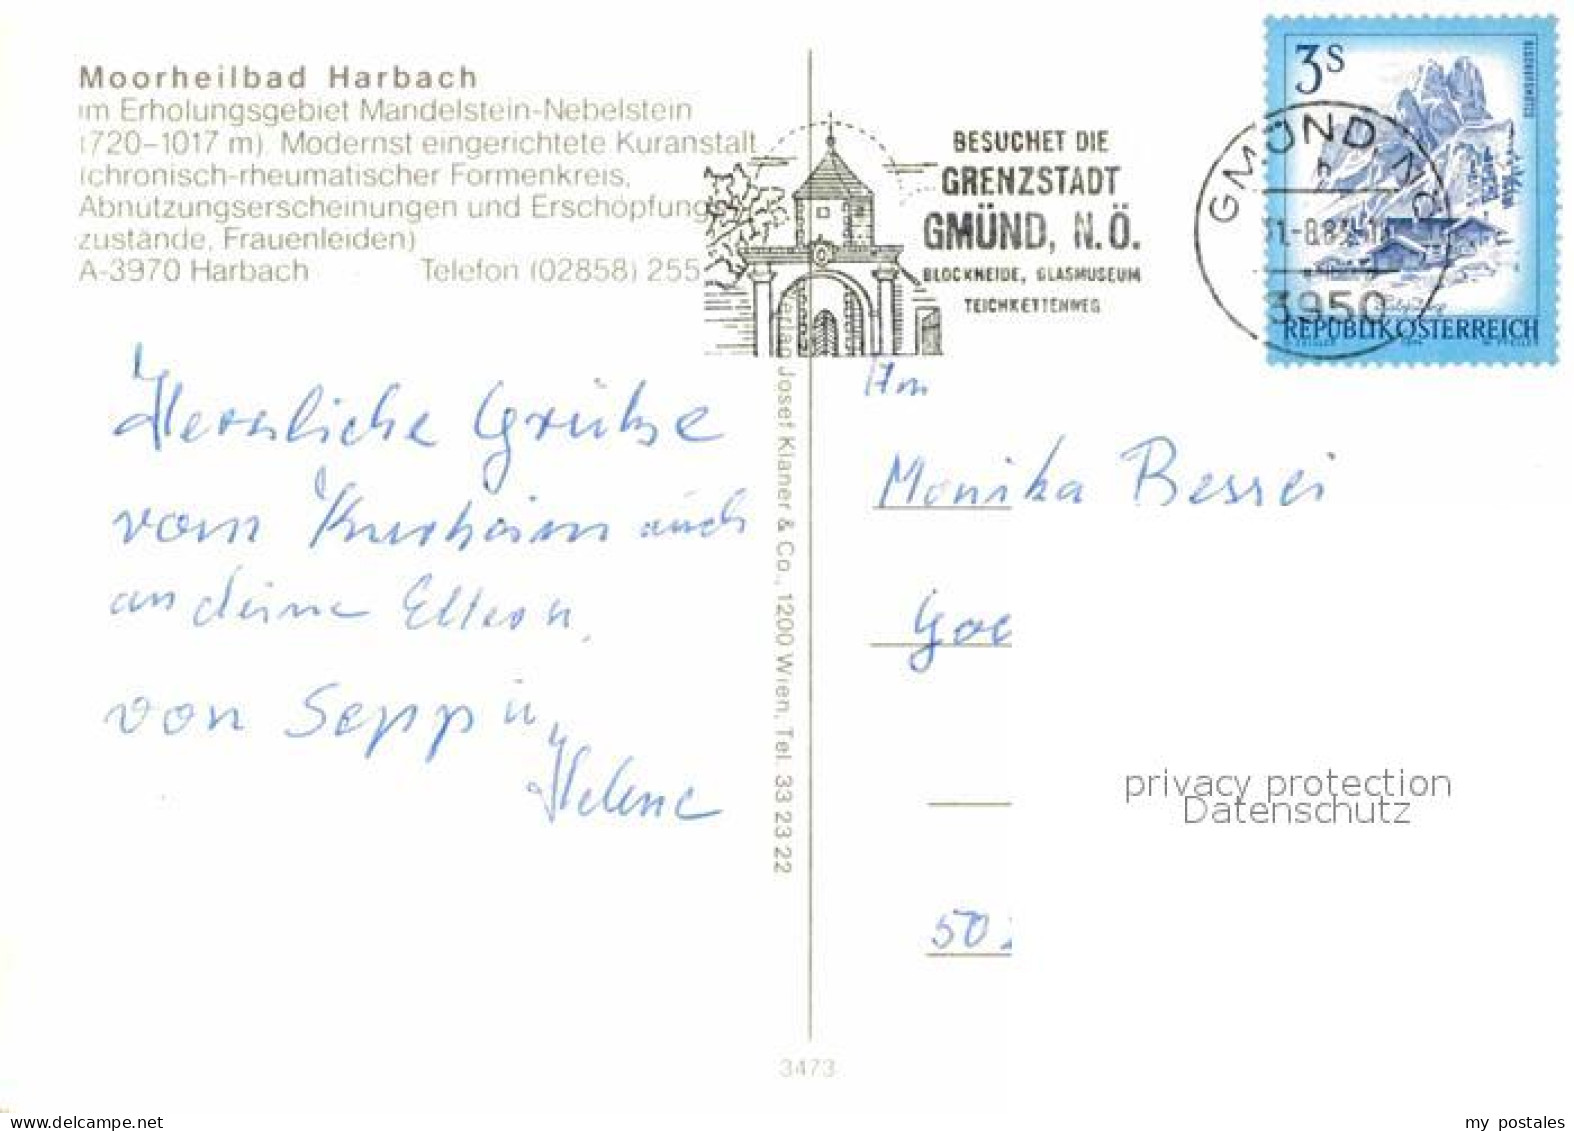 Moorheilbad Harbach
im Erholungsgebiet Mandelstein-Nebelstein
(720–1017 m). Modernst eingerichtete Kuranstalt
(chronisch-rheumatischer Formenkreis,
Abnutzungserscheinungen und Erschöpfungs
zustände, Frauenleiden)
A-3970 Harbach Telefon (02858) 255
Herzliche Grüße
vom Kurheim auch
an deine Eltern.
von Sepp u,
Helene
Verlag Josef Klaner & Co., 1200 Wien, Tel. 33 23 22
3473
BESUCHET DIE
GRENZSTADT
GMÜND, N.Ö.
BLOCKHEIDE, GLASMUSEUM
TEICHKETTENWEG
GMÜND, NÖ
3950
3S
BISCHOFSMÜTZE
REPUBLIK ÖSTERREICH
An
Monika Bessei
Goe
50
privacy protection
Datenschutz
www.delcampe.net
my postales